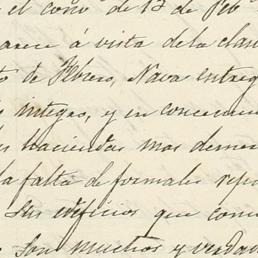 el conv de 13 de Feb
arece á vista de la clau
to de Febrero, Nava entreg
integro, y en concern
haciendas mas demer
la falta de formales rep
Sus edificios que com
Son muchos y verda